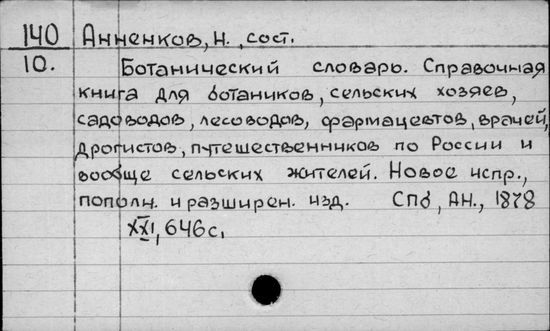 140 Анненков, Н., сост.
10. Ботанический словарь. Справочная
книга для ботаников, сельских хозяев,
садоводов, лесоводов, фармацевтов, врачей,
дрогистов, путешественников по России и
вообще сельских жителей. Новое испр.,
пополн. и разширен. изд. Спб, АН., 1878
XXI, 646 с.